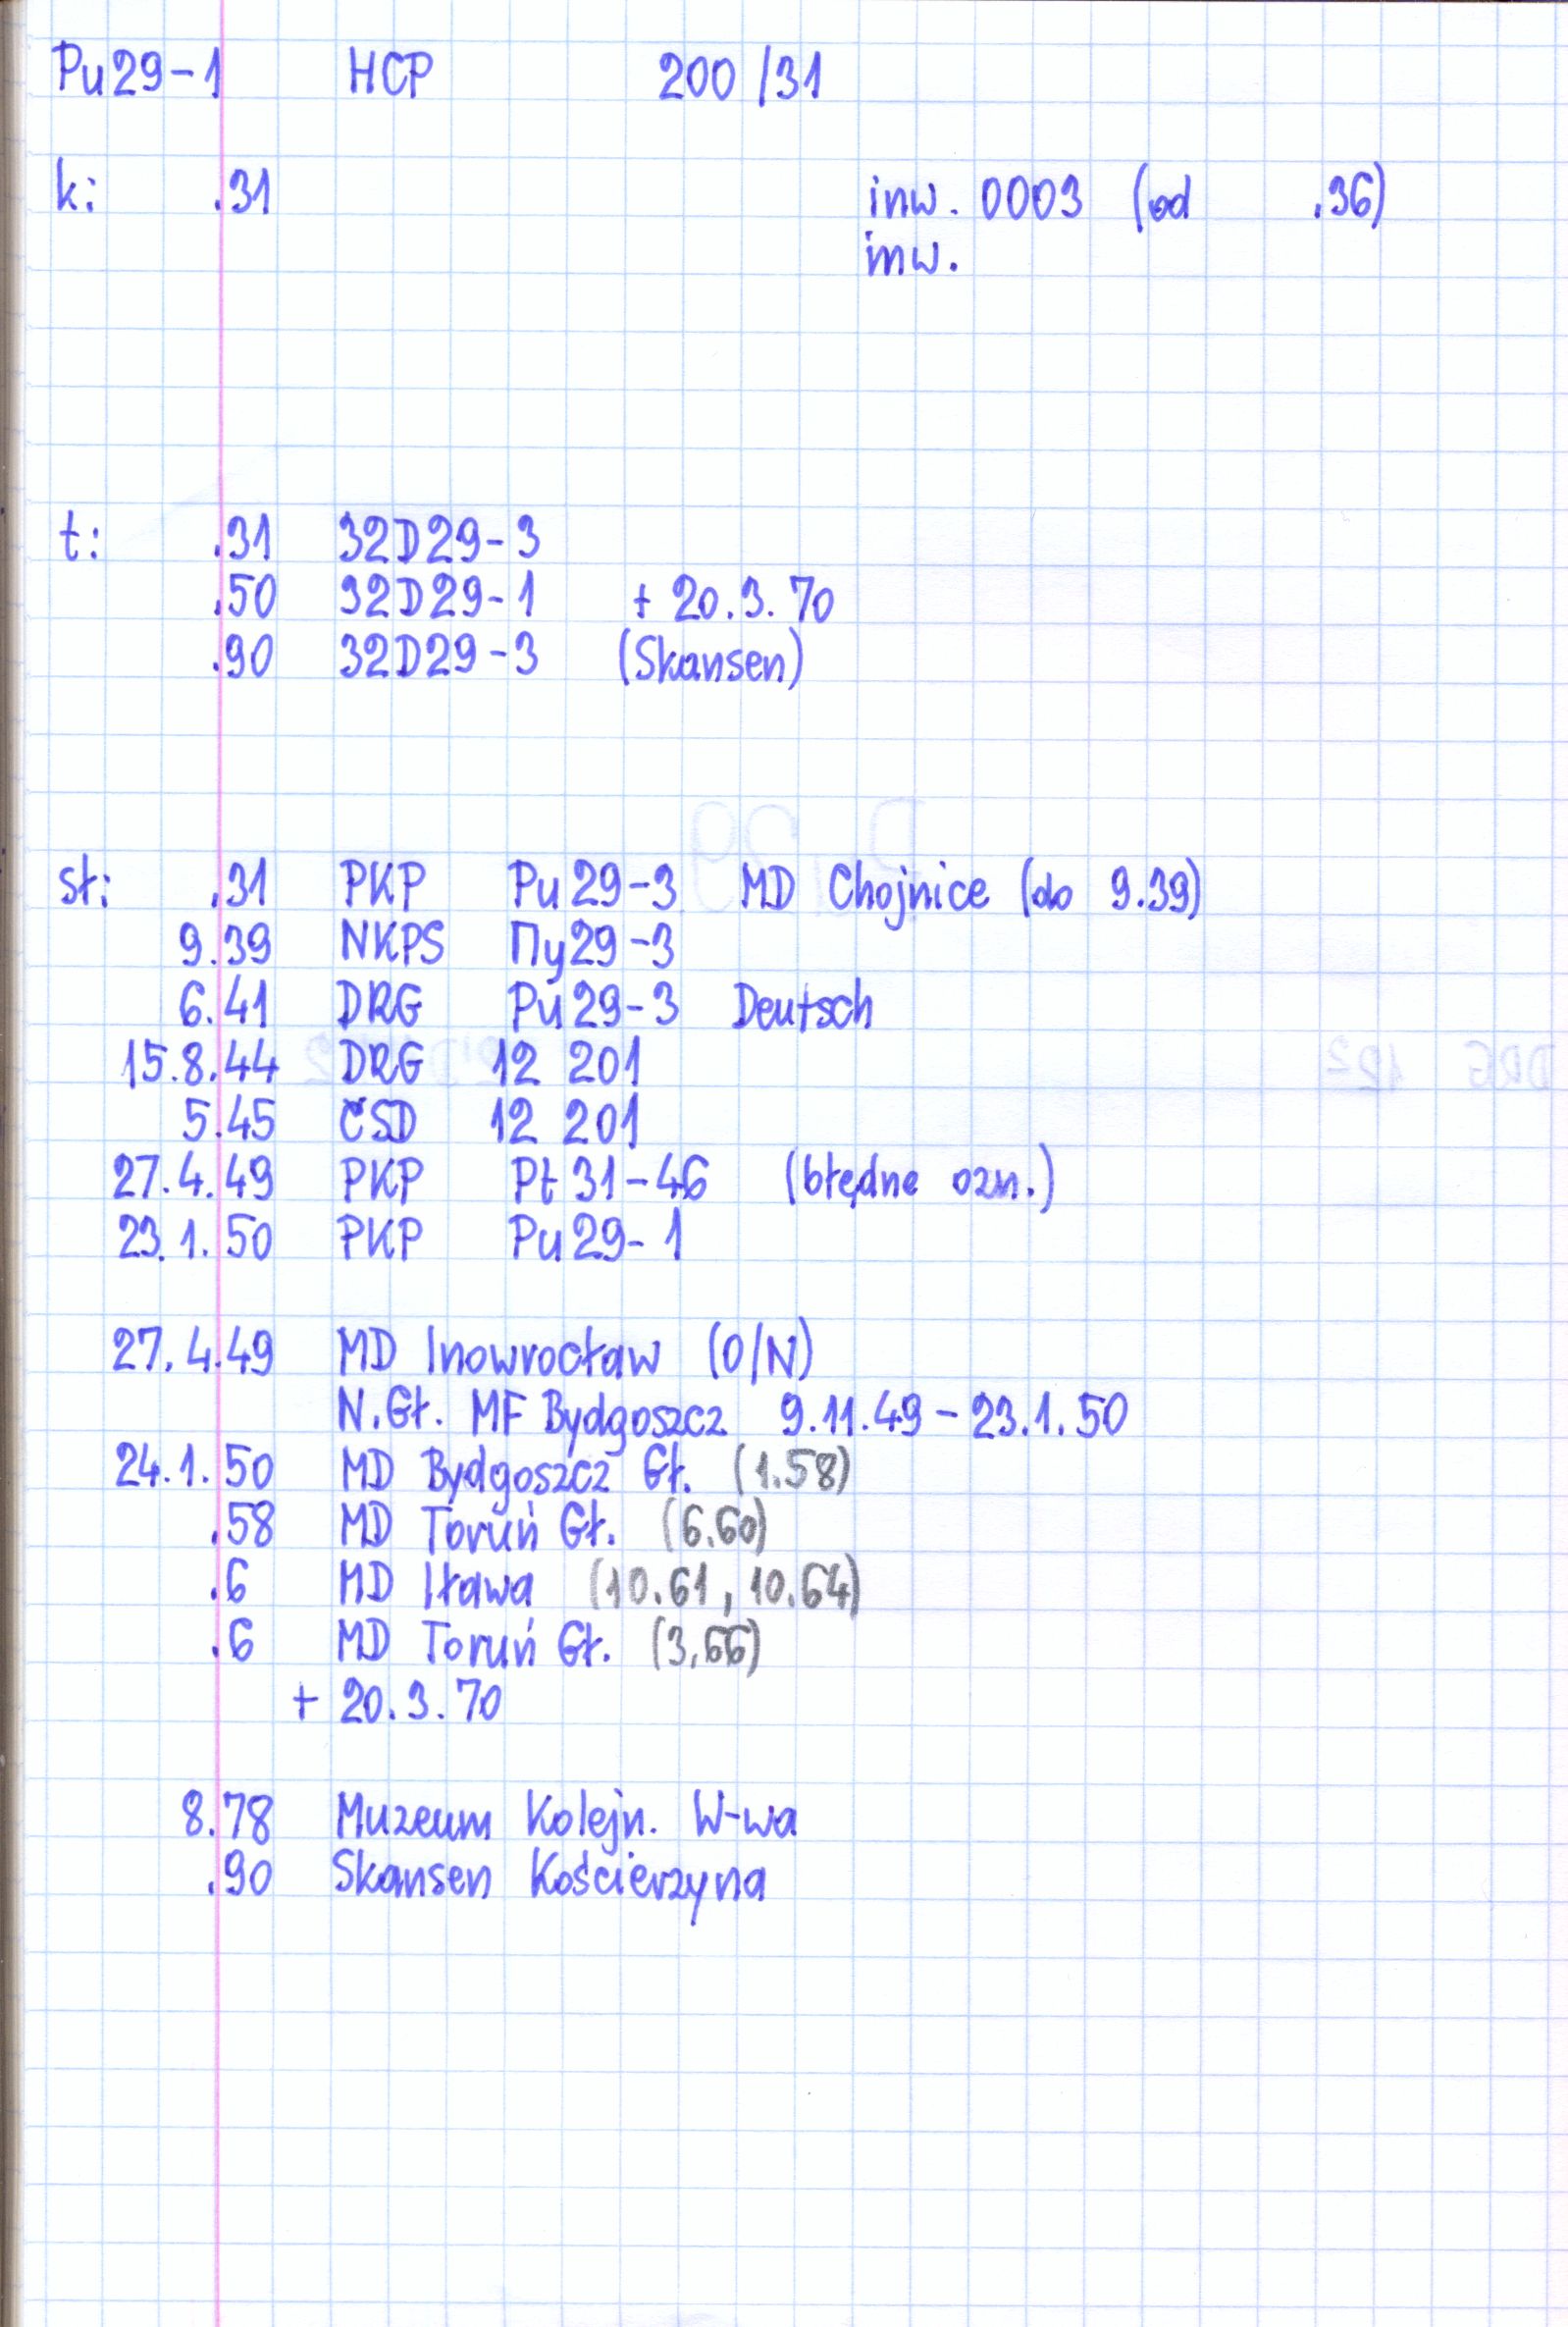 Pu29-1 HCP 200/31
k: .31 inw. 0003 (od .36)
inw.
t: .31 32D29-3
.50 32D29-1 + 20.3.70
.90 32D29-3 (Skansen)
sł: .31 PKP Pu29-3 MD Chojnice (do 9.39)
9.39 NKPS Пу29-3
6.41 DRG Pu29-3 Deutsch
15.8.44 DRG 12 201
5.45 ČSD 12 201
27.4.49 PKP Pt31-46 (błędne ozn.)
23.1.50 PKP Pu29-1
27.4.49 MD Inowrocław (O/N)
N.Gł. MF Bydgoszcz 9.11.49-23.1.50
24.1.50 MD Bydgoszcz Gł. (1.58)
.58 MD Toruń Gł. (6.60)
.6 MD Iława (10.61, 10.64)
.6 MD Toruń Gł. (3.66)
+ 20.3.70
8.78 Muzeum Kolejn. W-wa
.90 Skansen Kościerzyna